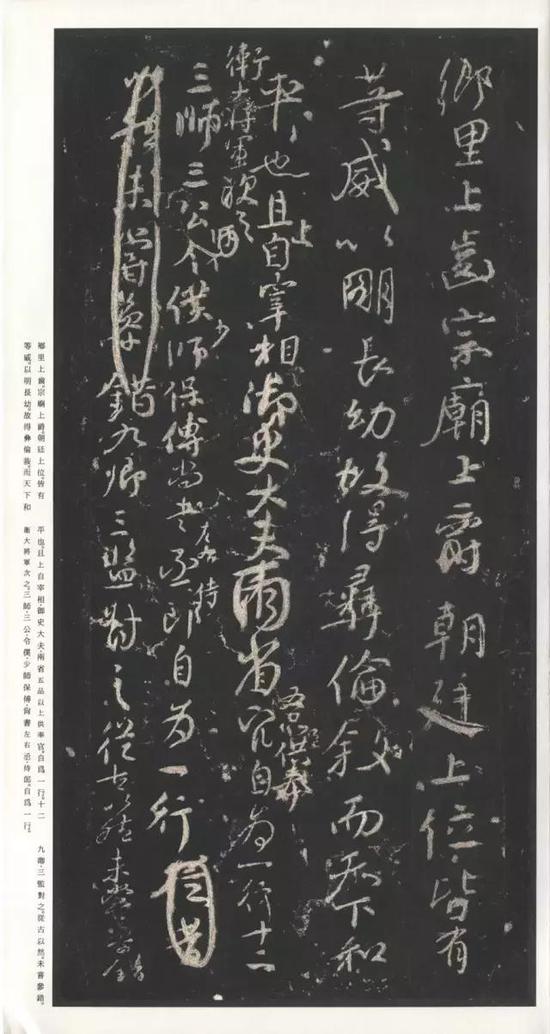 鄉里上齒宗廟上爵朝廷上位皆有
等威以明長幼故得彝倫敘而天下和
平也且上自宰相御史大夫兩省五品供奉官自為一行十二
衛大將軍次之
三師三公令僕少師保傅尚書左右丞侍郎自為一行
未嘗參錯九卿三監對之從古以然未嘗參錯
鄉里上齒,宗廟上爵,朝廷上位,皆有
等威,以明長幼,故得彝倫敘,而天下和
平也。且上自宰相、御史大夫、兩省五品以上供奉官,自爲一行,十二
衛大將軍次之,三師、三公、令僕、少師保傅、尚書左右丞、侍郎,自爲一行。
九卿、三監對之。從古以然,未嘗參錯。